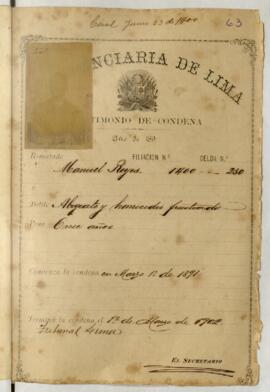 Casal Junio 23 de 1900
63
NCIARIA DE LIMA
TIMONIO DE CONDENA
Rematado FILIACION N.º CELDA N.º
Manuel Reyes 1400 230
Delito Abigeato y homicidio frustrado
Pena Once años
Comienza la condena en Marzo 12 de 1891
Termina la condena el 12 de Marzo de 1902
Tribunal
EL SECRETARIO